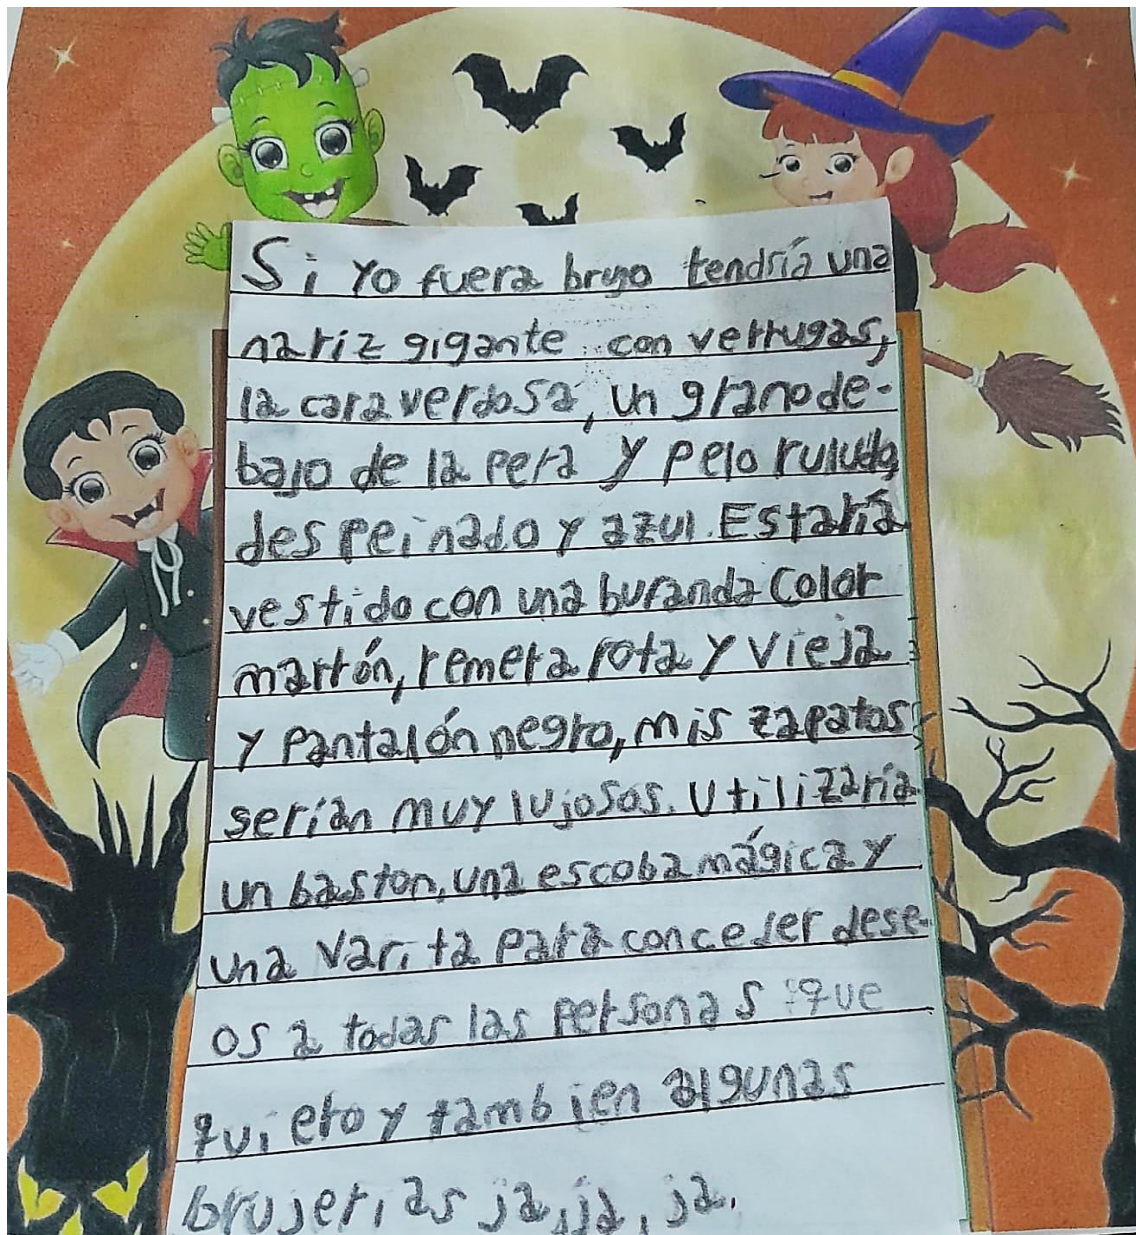 Si yo fuera brujo tendría una
nariz gigante con verrugas,
la cara verdosa, un grano de-
bajo de la pera y pelo ruludo
despeinado y azul. Estaría
vestido con una buranda color
marrón, remera rota y vieja
y pantalón negro, mis zapatos
serían muy lujosos. Utilizaría
un baston, una escoba mágica y
una varita para conceder dese-
os a todas las personas que
quiero y tambien algunas
brujerias ja, ja, ja.